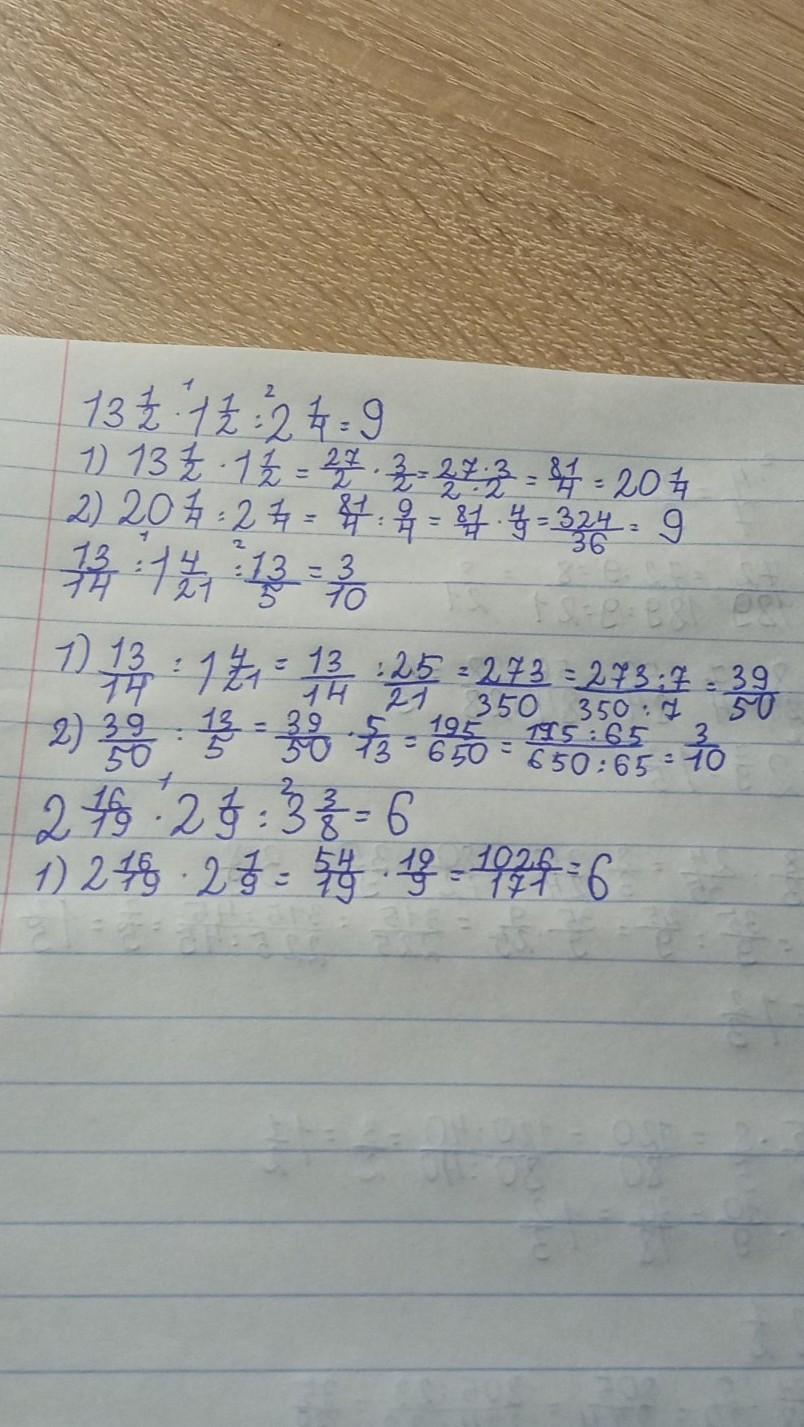 13 1/2 ·¹ 1 1/2 :² 2 1/4 = 9
1) 13 1/2 · 1 1/2 = 27/2 · 3/2 = 27·3/2·2 = 81/4 = 20 1/4
2) 20 1/4 : 2 1/4 = 81/4 : 9/4 = 81/4 · 4/9 = 324/36 = 9
13/14 :¹ 1 4/21 :² 13/5 = 3/10
1) 13/14 : 1 4/21 = 13/14 : 25/21 = 273/350 = 273:7/350:7 = 39/50
2) 39/50 : 13/5 = 39/50 · 5/13 = 195/650 = 195:65/650:65 = 3/10
2 16/19 ·¹ 2 1/9 :² 3 3/8 = 6
1) 2 16/19 · 2 1/9 = 54/19 · 19/9 = 1026/171 = 6